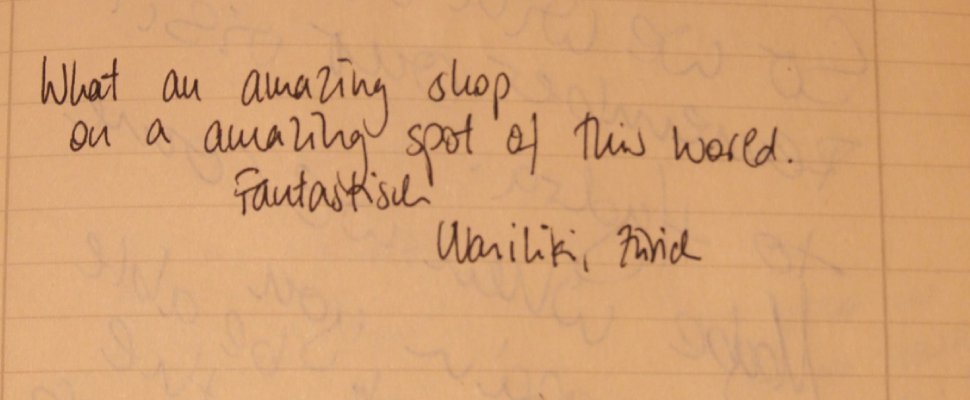 What an amazing shop
on a amazing spot of this world.
Fantastisch
Zürich